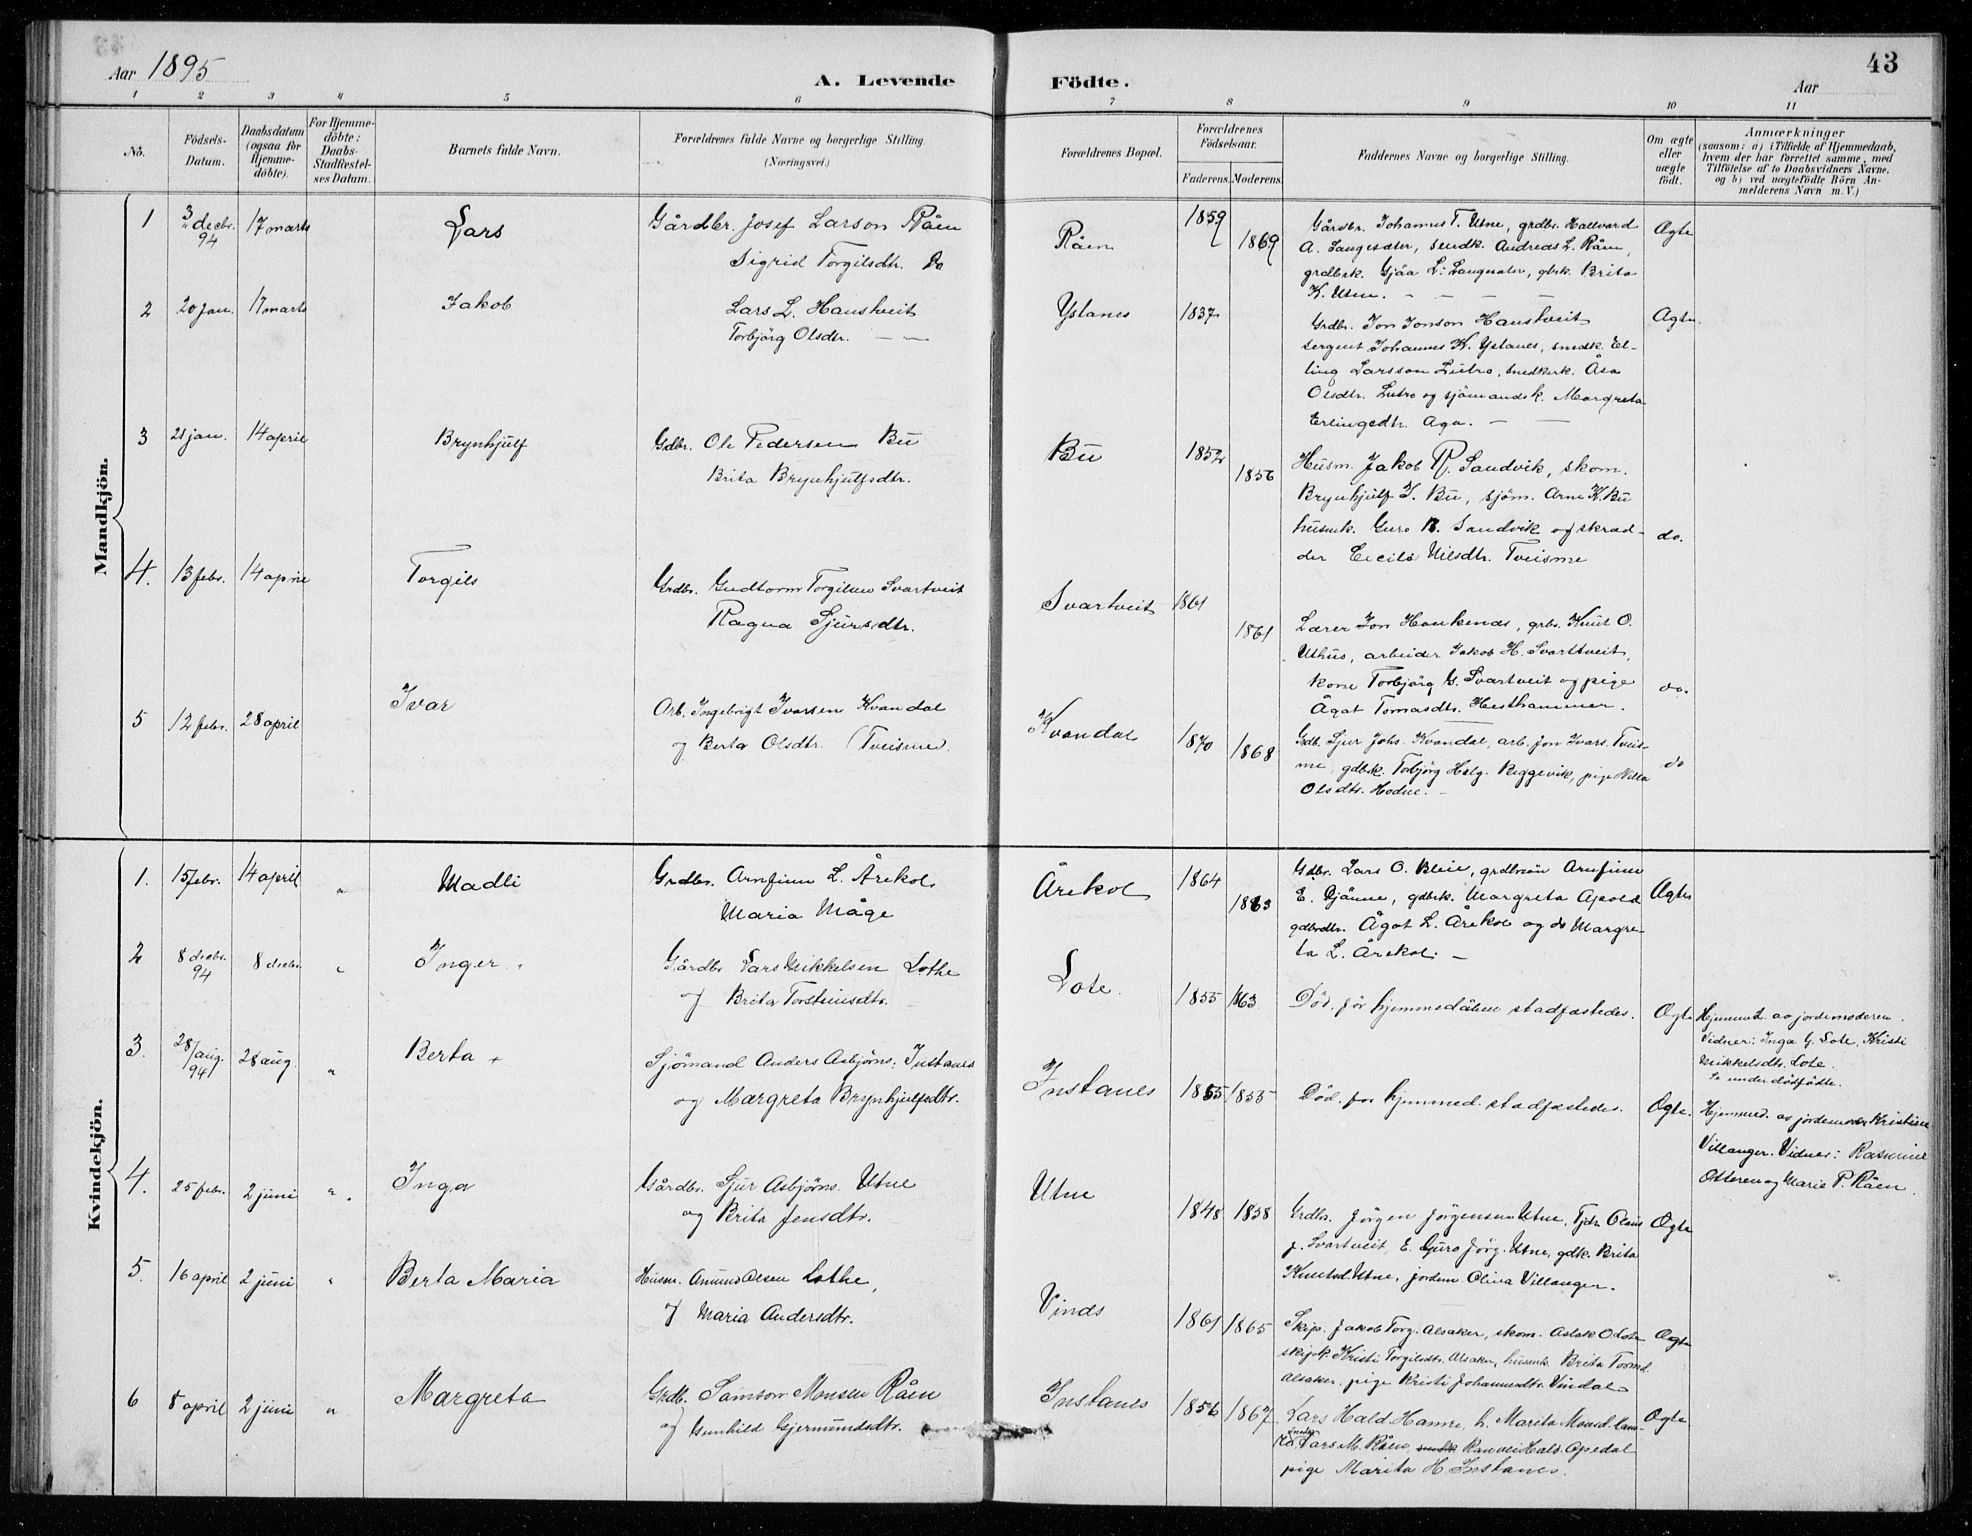 Aar 1895
A. Levende Födte.
Aar
43
1 2 3 4 5 6 7 8 9 10 11
No.
Födsels-Datum.
Daabsdatum (ogsaa for Hjemme-döbte).
For Hjemme-döbte: Daabs-Stadfæstel-ses Datum.
Barnets fulde Navn.
Forældrenes fulde Navne og borgerlige Stilling
(Næringsvei.)
Forældrenes Bopæl.
Forældrenes Födselsaar.
Faderens. Moderens.
Faddernes Navne og borgerlige Stilling.
Om ægte eller uægte födt.
Anmærkninger
(saasom: a) i Tilfælde af Hjemmedaab,
hvem der har forrettet samme, med
Tilföielse af to Daabsvidners Navne.
og b) ved uægtefödte Börn An-
melderens Navn m. V.)
Mandkjön.
1 3 decbr. 94 17 marts Lars Gårdbr. Josef Larson Råen
Sigrid Torgilsdtr. Do
Råen 1859 1869
Gårdbr. Johannes T. Utne, grdbr. Hallvard
A. Langesæter, smedk. Andreas L. Råen,
grdbrk. Gjöa L. Langesæter, gbrk. Brita
K. Utne. - - - -
Ægte
2 20 jan. 17 marts Jakob Lars L. Hanstveit
Torbjörg Olsdtr. - -
Ystanes 1837
Grdbr. Jon Jonson Hanstveit
sergent Johannes K. Ystanes, smedk. El-
ling Larsson Lutro, snedkerk. Åsa
Olsdtr. Lutro og sjömandsk. Margreta
Erlingsdtr. Aga. - -
Ægte.
3 21 jan. 14 april Brynhjulf Gdbr. Ole Pedersen Bu
Brita Brynhjulfsdtr.
Bu 1852 1856
Husm. Jakob R. Sandvik, skom.
Brynhjulf J. Bu, sjöm. Arne K. Bu
husmk. Guro B. Sandvik og skræd-
der Cecilå Nilsdtr. Tveisme
do.
4. 13 febr. 14 april Torgils Grdbr. Gudtorm Torgilsen Svartveit
Ragna Sjursdtr.
Svartveit 1861 1861
Lærer Jon Haukenæs, grbr. Knut O.
Uthus, arbeider Jakob H. Svartveit,
kone Torbjörg G. Svartveit og pige
Ågat Tomasdtr. Hesthammer.
do.
5 12 febr. 28 april Ivar Arb. Ingebrigt Ivarsen Kvandal
og Berta Olsdtr. (Tveisme.
Kvandal 1870 1868
Grdb. Sjur Johs. Kvandal, arb. Jon Ivars. Tveis-
me, gdbrk. Torbjörg Helg. Reggevik, pige Nilla
Olsdtr. Hodne. -
do
Kvindekjön.
1. 15 febr. 14 april " Madli Grdbr. Arnfinn L. Årekol.
Maria Måge
Årekol 1864 1863
Gdbr. Lars O. Bleie, grdbrsön Arnfinn
E. Djönne, gdbrk. Margreta Apold
gdbrdtr. Ågot L. Årekol og do Margre-
ta L. Årekol. -
Ægte
2 8 decbr. 94 8 decbr. " Inger Gårdbr Lars Mikkelsen Lothe
og Brita Torsteinsdtr.
Lote. 1855 1863
Död. för hjemmedåben stadfæstedes.
Ægte
Hjemmed. av jordemoderen.
Vidner: Inga G. Lote, Kristi
Mikkelsdtr. Lote.
Se under dödfödte.
3. 28/aug. 94 28 aug. " Berta + Sjömand Anders Asbjörns. Instanes
og Margreta Brynhjulfsdtr.
Instanes 1855 1855
Död. för hjemmed. stadfæstedes.
Ægte.
Hjemmed. av jordemoder Kristine
Villanger. Vidner: Rasmine
Otteren og Marie P. Råen.
4. 25 febr. 2 juni " Inga Gårdbr. Sjur Asbjörns. Utne
og Brita Jensdtr.
Utne 1848 1858
Grdbr. Jörgen Jörgensen Utne, Tjdr. Olaus
J. Svartveit, E. Guro Jörg. Utne, gdk. Brita
Knutsd. Utne, jordem. Oliva Villanger.
Ægte
5. 16 april 2 juni " Berta Maria Husm. Amund Olsen Lothe,
og Maria Andersdtr.
Vinds 1861 1865
Skip. Jakob Torg. Alsaker, skom. Aslak O. Lote
skipk. Kristi Torgilsdtr. Alsaker, husmk. Brita Tormd.
Alsaker, pige Kristi Johannesdtr. Vindal
Ægte
6 8 april 2 juni " Margreta Grdb. Samson Monsen Råen
og Gunhild Gjermundsdtr.
Instanes 1856 1867
Lars Hald. Hamre, h. Marita Monsd. Ham-
re, Lars M. Råen, Ranvei Hald. Opedal
pige Marita H. Instanes.
Ægte